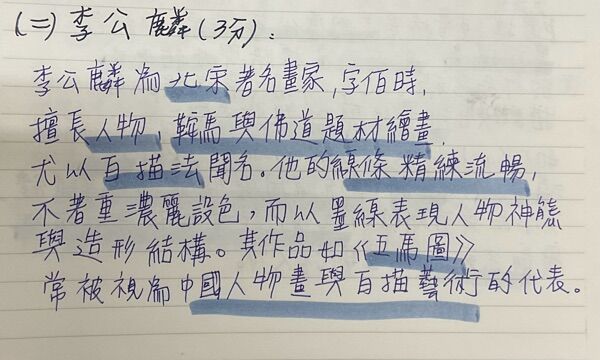 (二) 李公麟(3分):
李公麟為北宋著名畫家,字伯時,
擅長人物、鞍馬與佛道題材繪畫,
尤以白描法聞名。他的線條精練流暢,
不著重濃麗設色,而以墨線表現人物神態
與造形結構。其作品如《五馬圖》
常被視為中國人物畫與白描藝術的代表。